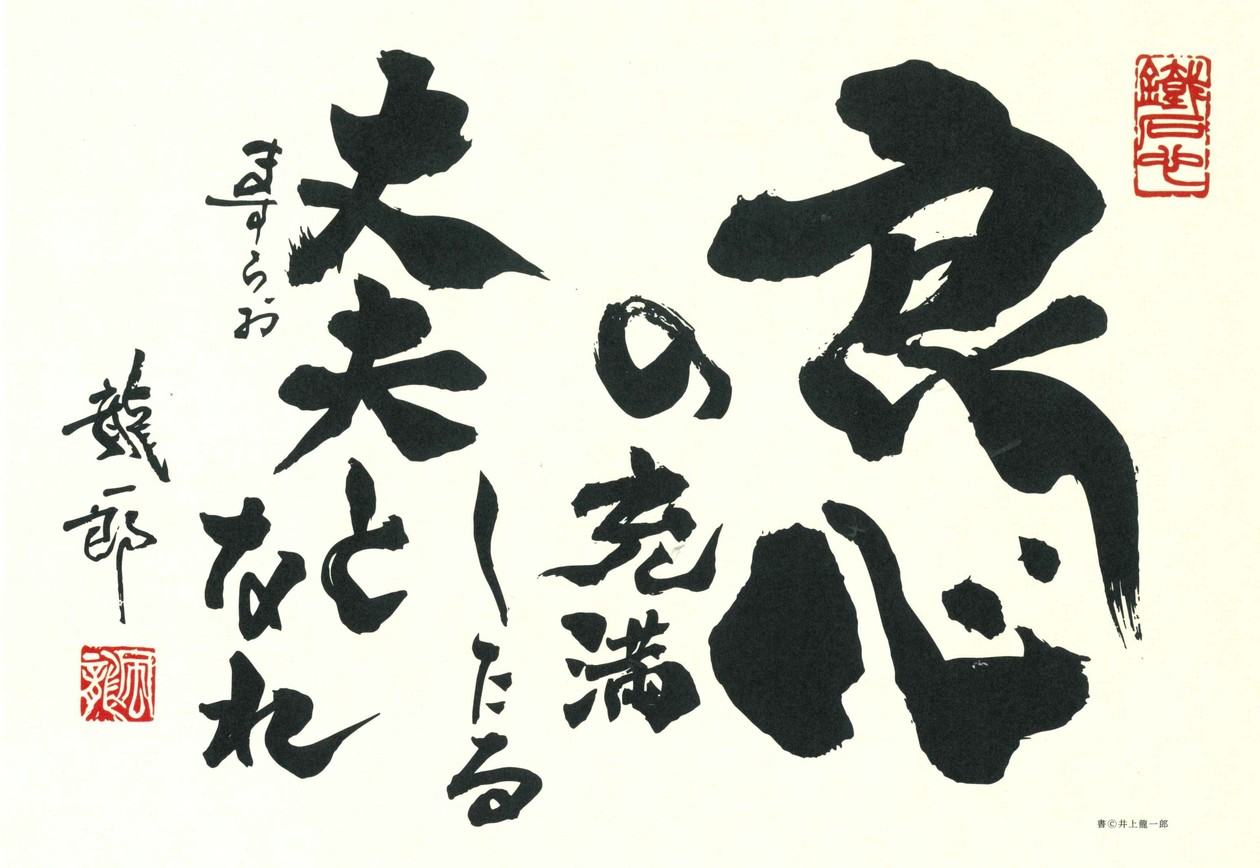 良心
の充満
したる
丈夫と
ますらお
なれ
龍一郎
書©井上龍一郎